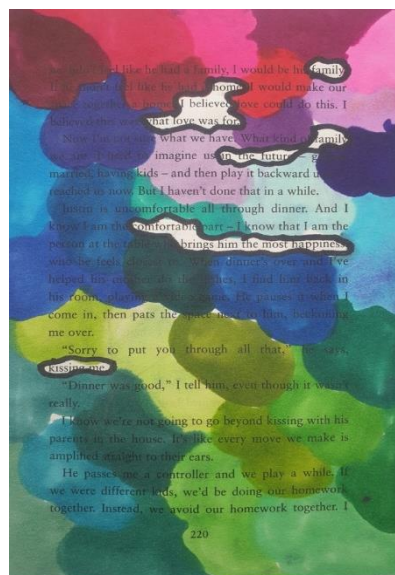 feel like he had a family, I would be his family.
feel like he had a home, I would make our
together a home. I believed love could do this. I
believed this was what love was for.
Now I'm not sure what we have. What kind of family
we are. I used to imagine us in the future –
married, having kids – and then play it backward
reached us now. But I haven't done that in a while.
Justin is uncomfortable all through dinner. And I
know I am the comfortable part – I know that I am the
person at the table who brings him the most happiness,
who he feels closest to. When dinner's over and I've
helped his mother do the dishes, I find him back in
his room, playing a game. He pauses it when I
come in, then pats the space next to him, beckoning
me over.
"Sorry to put you through all that," he says,
kissing me.
"Dinner was good," I tell him, even though it wasn't
really.
I know we're not going to go beyond kissing with his
parents in the house. It's like every move we make is
amplified straight to their ears.
He passes me a controller and we play a while. If
we were different kids, we'd be doing our homework
together. Instead, we avoid our homework together. I
220